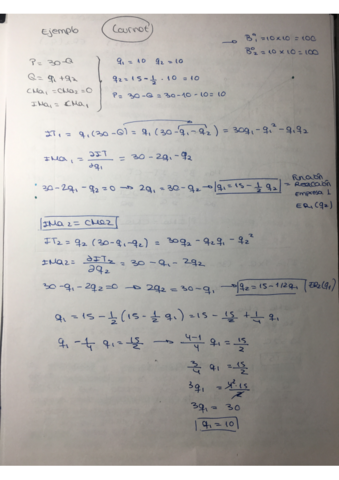 Ejemplo Cournot
B₁ⁿ = 10 × 10 = 100
B₂ⁿ = 10 × 10 = 100
P = 30 - Q
Q = q₁ + q₂
CMa₁ = CMa₂ = 0
IMa₁ = CMa₁
q₁ = 10 q₂ = 10
q₂ = 15 - 1/2 · 10 = 10
P = 30 - Q = 30 - 10 - 10 = 10
IT₁ = q₁ (30 - Q) = q₁ (30 - q₁ - q₂) = 30q₁ - q₁² - q₁q₂
IMa₁ = ∂IT/∂q₁ = 30 - 2q₁ - q₂
30 - 2q₁ - q₂ = 0 → 2q₁ = 30 - q₂ → q₁ = 15 - 1/2 q₂ = Función Reacción empresa 1
ER₁(q₂)
IMa₂ = CMa₂
IT₂ = q₂ (30 - q₁ - q₂) = 30q₂ - q₂q₁ - q₂²
IMa₂ = ∂IT₂/∂q₂ = 30 - q₁ - 2q₂
30 - q₁ - 2q₂ = 0 → 2q₂ = 30 - q₁ → q₂ = 15 - 1/2q₁ ER₂(q₁)
q₁ = 15 - 1/2 (15 - 1/2 q₁) = 15 - 15/2 + 1/4 q₁
q₁ - 1/4 q₁ = 15/2 → 4-1/4 q₁ = 15/2
3/4 q₁ = 15/2
3q₁ = 4² 15/2
3q₁ = 30
q₁ = 10